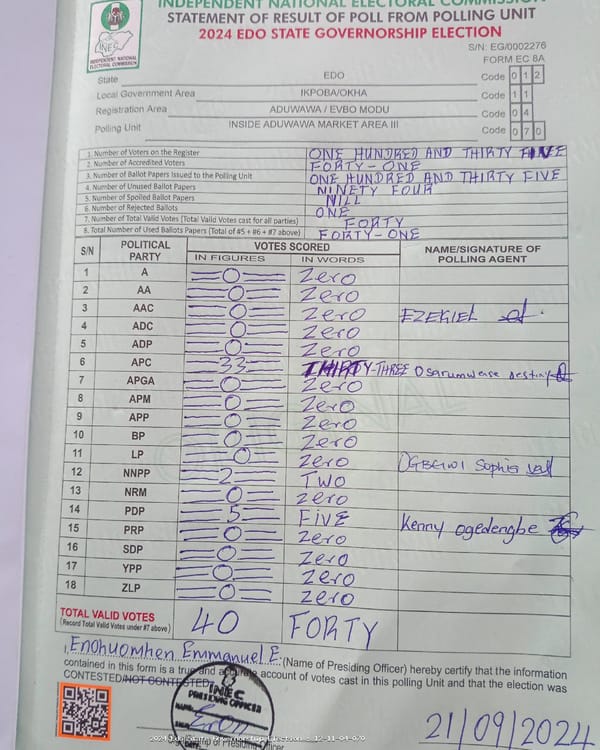 INDEPENDENT NATIONAL ELECTORAL COMMISSION
STATEMENT OF RESULT OF POLL FROM POLLING UNIT
2024 EDO STATE GOVERNORSHIP ELECTION
INEC
INDEPENDENT NATIONAL ELECTORAL COMMISSION
S/N: EG/0002276
FORM EC 8A
State EDO Code 0 1 2
Local Government Area IKPOBA/OKHA Code 1 1
Registration Area ADUWAWA / EVBO MODU Code 0 4
Polling Unit INSIDE ADUWAWA MARKET AREA III Code 0 7 0
1. Number of Voters on the Register ONE HUNDRED AND THIRTY FIVE
2. Number of Accredited Voters FORTY-ONE
3. Number of Ballot Papers Issued to the Polling Unit ONE HUNDRED AND THIRTY FIVE
4. Number of Unused Ballot Papers NINETY FOUR
5. Number of Spoiled Ballot Papers NILL
6. Number of Rejected Ballots ONE
7. Number of Total Valid Votes (Total Valid Votes cast for all parties) FORTY
8. Total Number of Used Ballots Papers (Total of #5 + #6 + #7 above) FORTY-ONE
S/N POLITICAL PARTY VOTES SCORED NAME/SIGNATURE OF POLLING AGENT
IN FIGURES IN WORDS
1 A 0 Zero
2 AA 0 Zero
3 AAC 0 Zero EZEKIEL
4 ADC 0 Zero
5 ADP 0 Zero
6 APC 33 THIRTY-THREE Osarumwense destiny
7 APGA 0 Zero
8 APM 0 Zero
9 APP 0 Zero
10 BP 0 Zero
11 LP 0 Zero OGBEIWI Sophia
12 NNPP 2 TWO
13 NRM 0 Zero
14 PDP 5 FIVE Kenny ogedengbe
15 PRP 0 Zero
16 SDP 0 Zero
17 YPP 0 Zero
18 ZLP 0 Zero
TOTAL VALID VOTES 40 FORTY
(Record Total Valid Votes under #7 above)
I, Enohuomhen Emmanuel E. (Name of Presiding Officer) hereby certify that the information
contained in this form is a true and accurate account of votes cast in this polling Unit and that the election was
CONTESTED/NOT CONTESTED.
INEC
PRESIDING OFFICER
NAME:
DATE:
21/09/2024